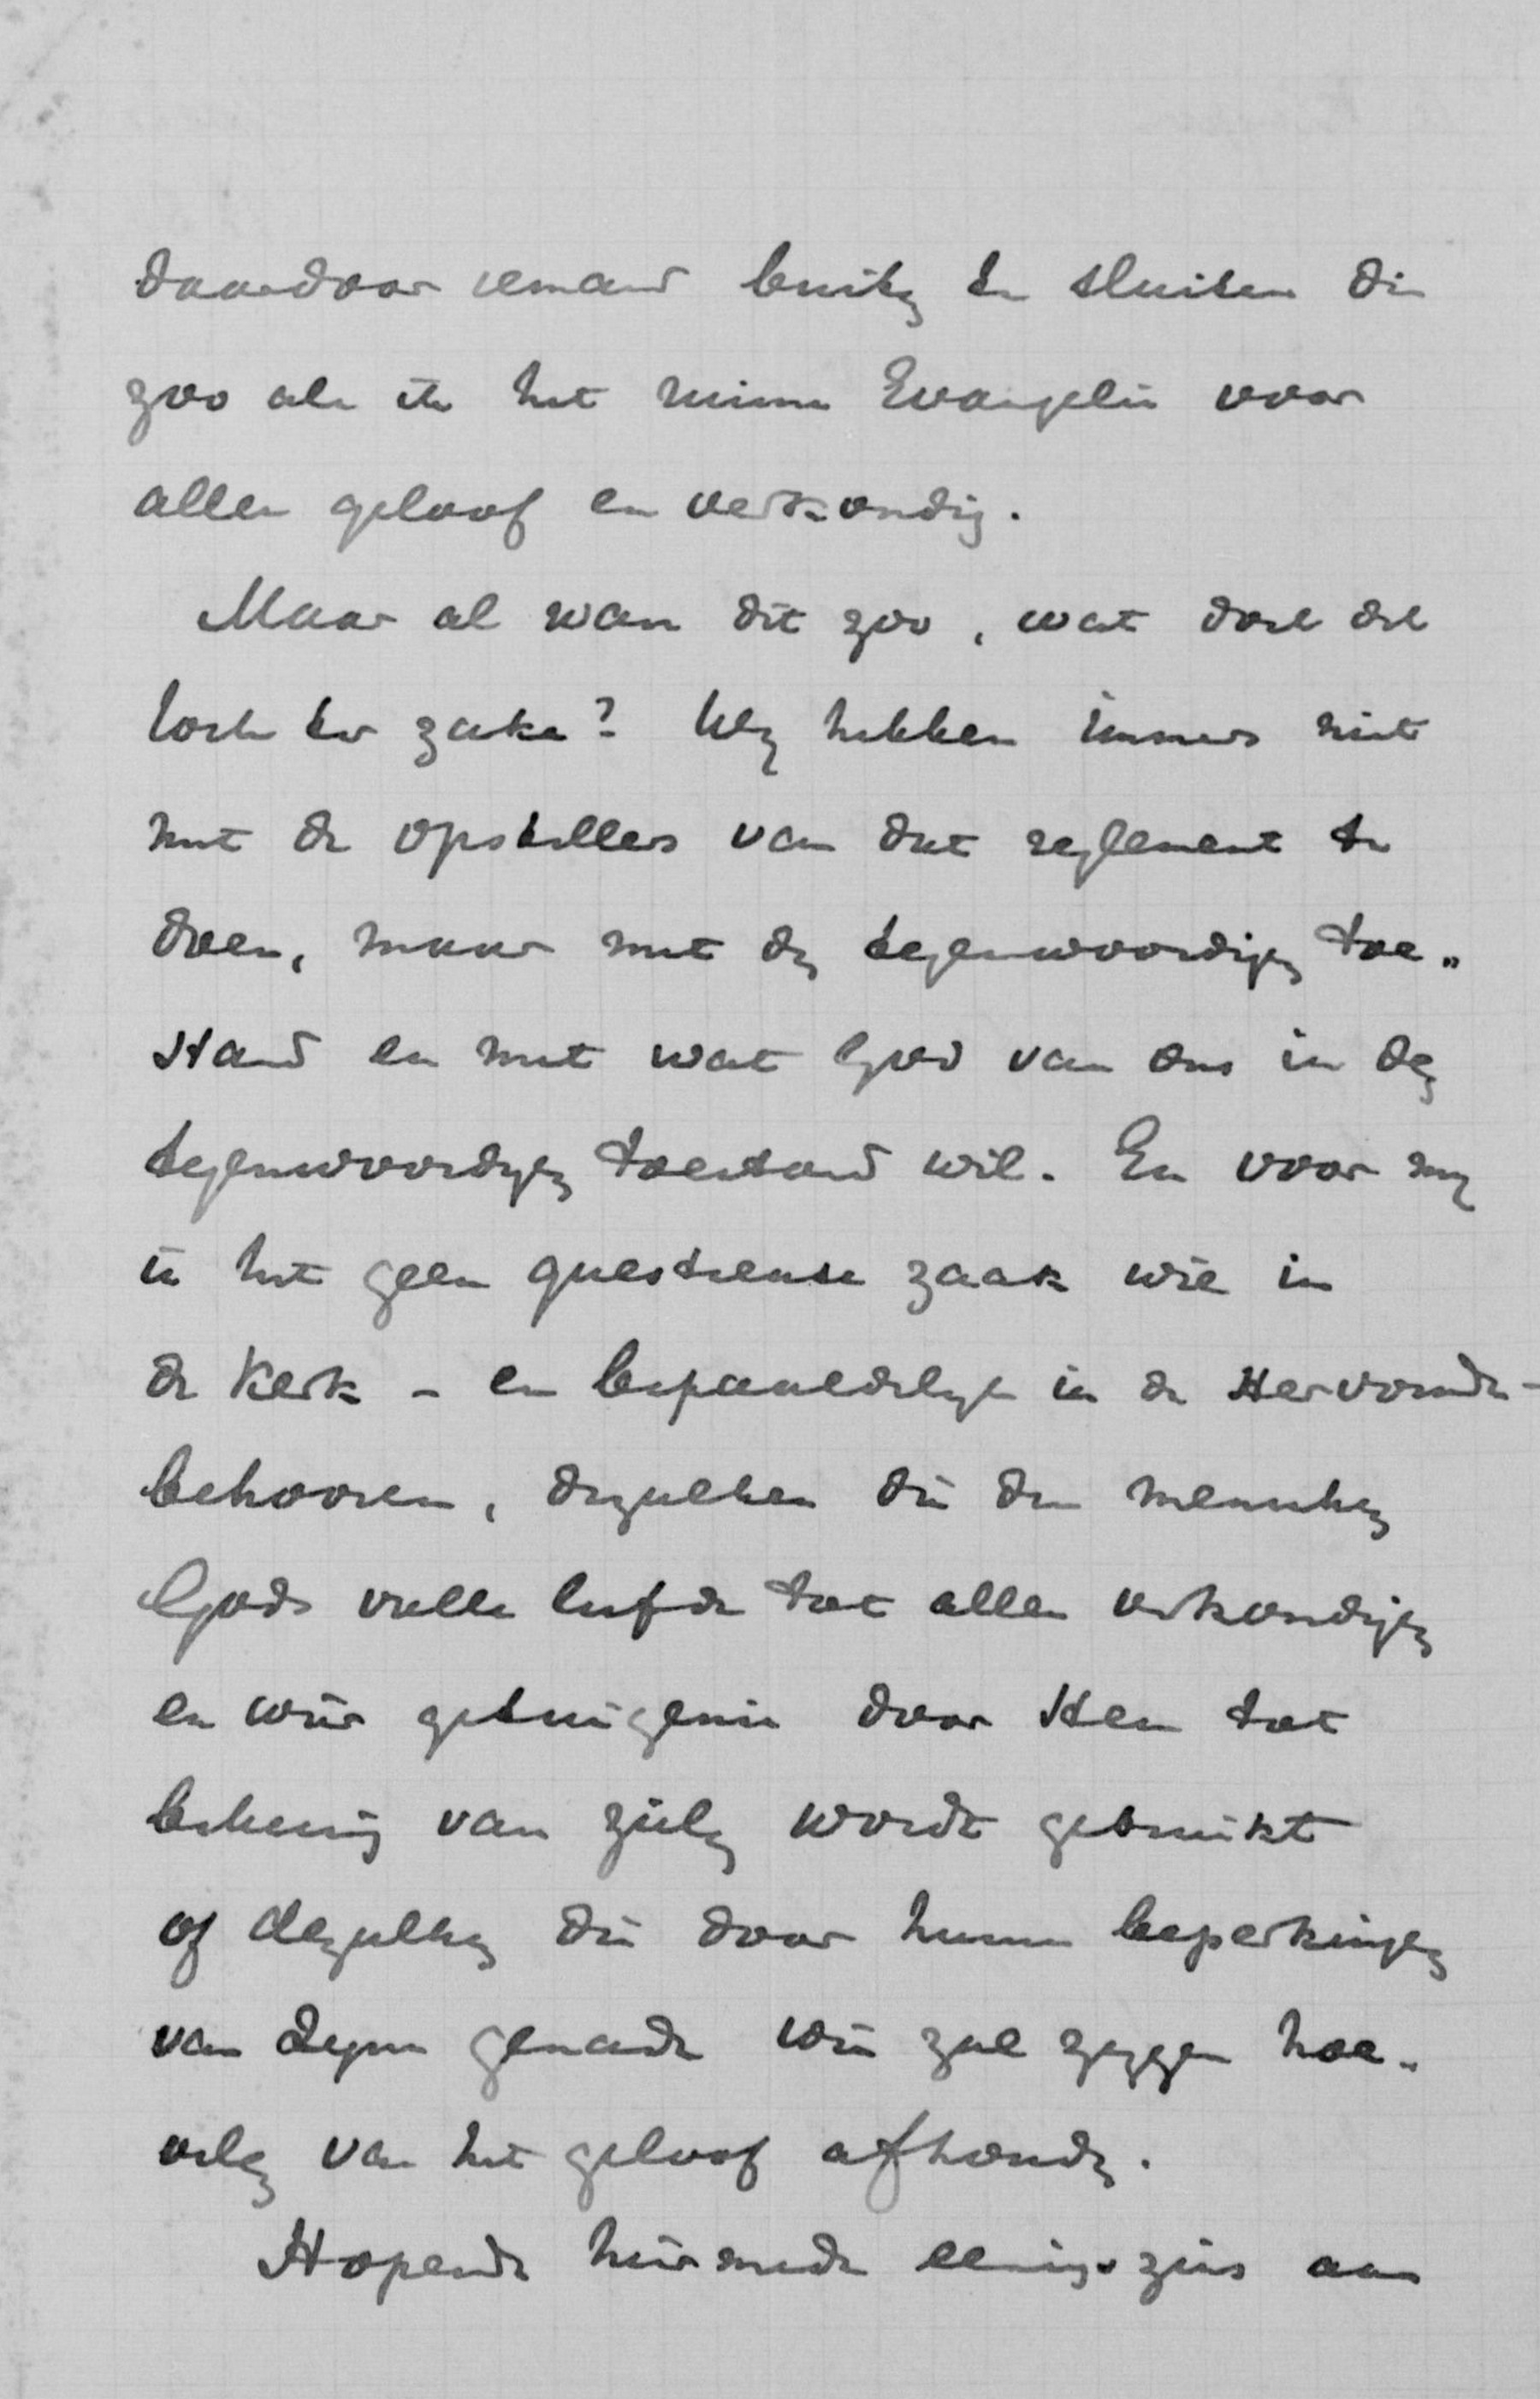 daardoor iemand buiten te sluiten die
zoo als ik het ruime Evangelie voor
allen geloof en verkondig.
Maar al ware dit zoo, wat doet dit
toch ter zake? Wij hebben immers niet
met de opstellers van dat reglement te
doen, maar met den tegenwoordigen toe„
stand en met wat God van ons in den
tegenwoordigen toestand wil. En voor mij
is het geen questieuse zaak wie in
de Kerk - en bepaaldelijk in de Hervormde -
behooren, dezulken die den menschen
Gods volle liefde tot allen verkondigen
en wier getuigenis door Hem tot
bekeering van zielen wordt gebruikt
of dezulken die door hunne beperkingen
van Zijne genade wie zal zeggen hoe„
velen van het geloof afhouden.
Hopende hiermede eenigszins aan